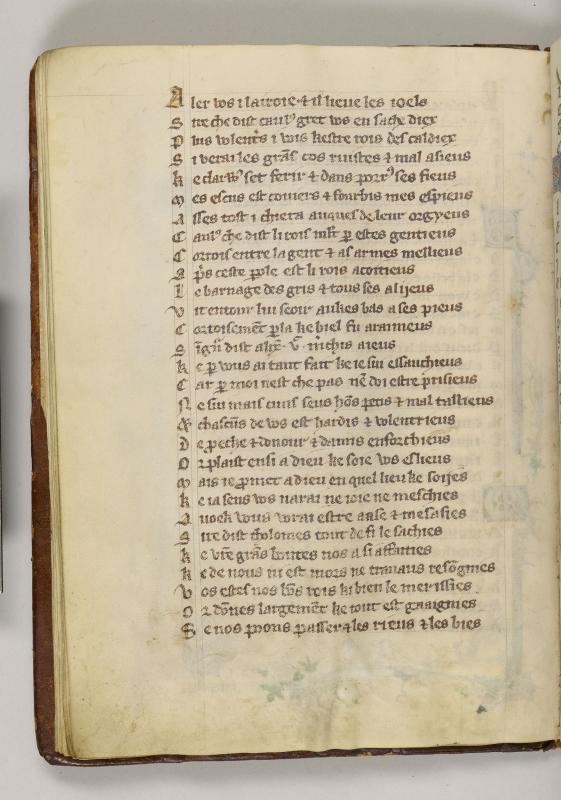 A ler vos i lairoie ⁊ il lieve les ioels
S ire che dist caulꝰ gret vos en sache diex
P lus volentꝭs i vois kestre rois des caldiex
S i verai les grãs cos ruistes ⁊ mal asieus
K e clarꝰ set ferir ⁊ dans porrꝰ ses fieus
M es escus est couiers ⁊ fourbis mes espieus
A sses tost i chiera auques de leur orgyeus
C aulꝰ che dist li rois estes gentieus
C ortois entre la gent ⁊ as armes mellieus
A p̃s ceste pole est li rois acoitieus
L e barnage des gris ⁊ tous ses alijeus
V it entour lui seoir aukes bas a ses pieus
C ortoisemẽt pla ke biel fu araimeus
S dist alix̃ aieus
K e p vous ai tant fait ke ie sui essauchieus
C ar p moi nest che pas nẽ doi estre prisieus
N e sui mais cuns seus hõs petis ⁊ mal tallieus
M chascũs de vos est hardis ⁊ volentrieus
D e peche ⁊ donour ⁊ dauns enforchieus
O r plaist ensi a dieu ke soie vos eslieus
M ais ie pmet a dieu en quel lieu ke soijes
K e ia sens vos narai ne ioie ne meschies
A voek vous vorai estre aise ⁊ mesasies
S ire dist tholomes tout de fi le sachies
K e vrẽ grãs bontes nos a si affaities
K e de nous ni est mors ne travaus resõgnies
V os estes nos bõs rois ki bien le merissies
O r dõnes largemẽt ke tout est gaaignies
S e nos poons passer ⁊ les rieus ⁊ les bies